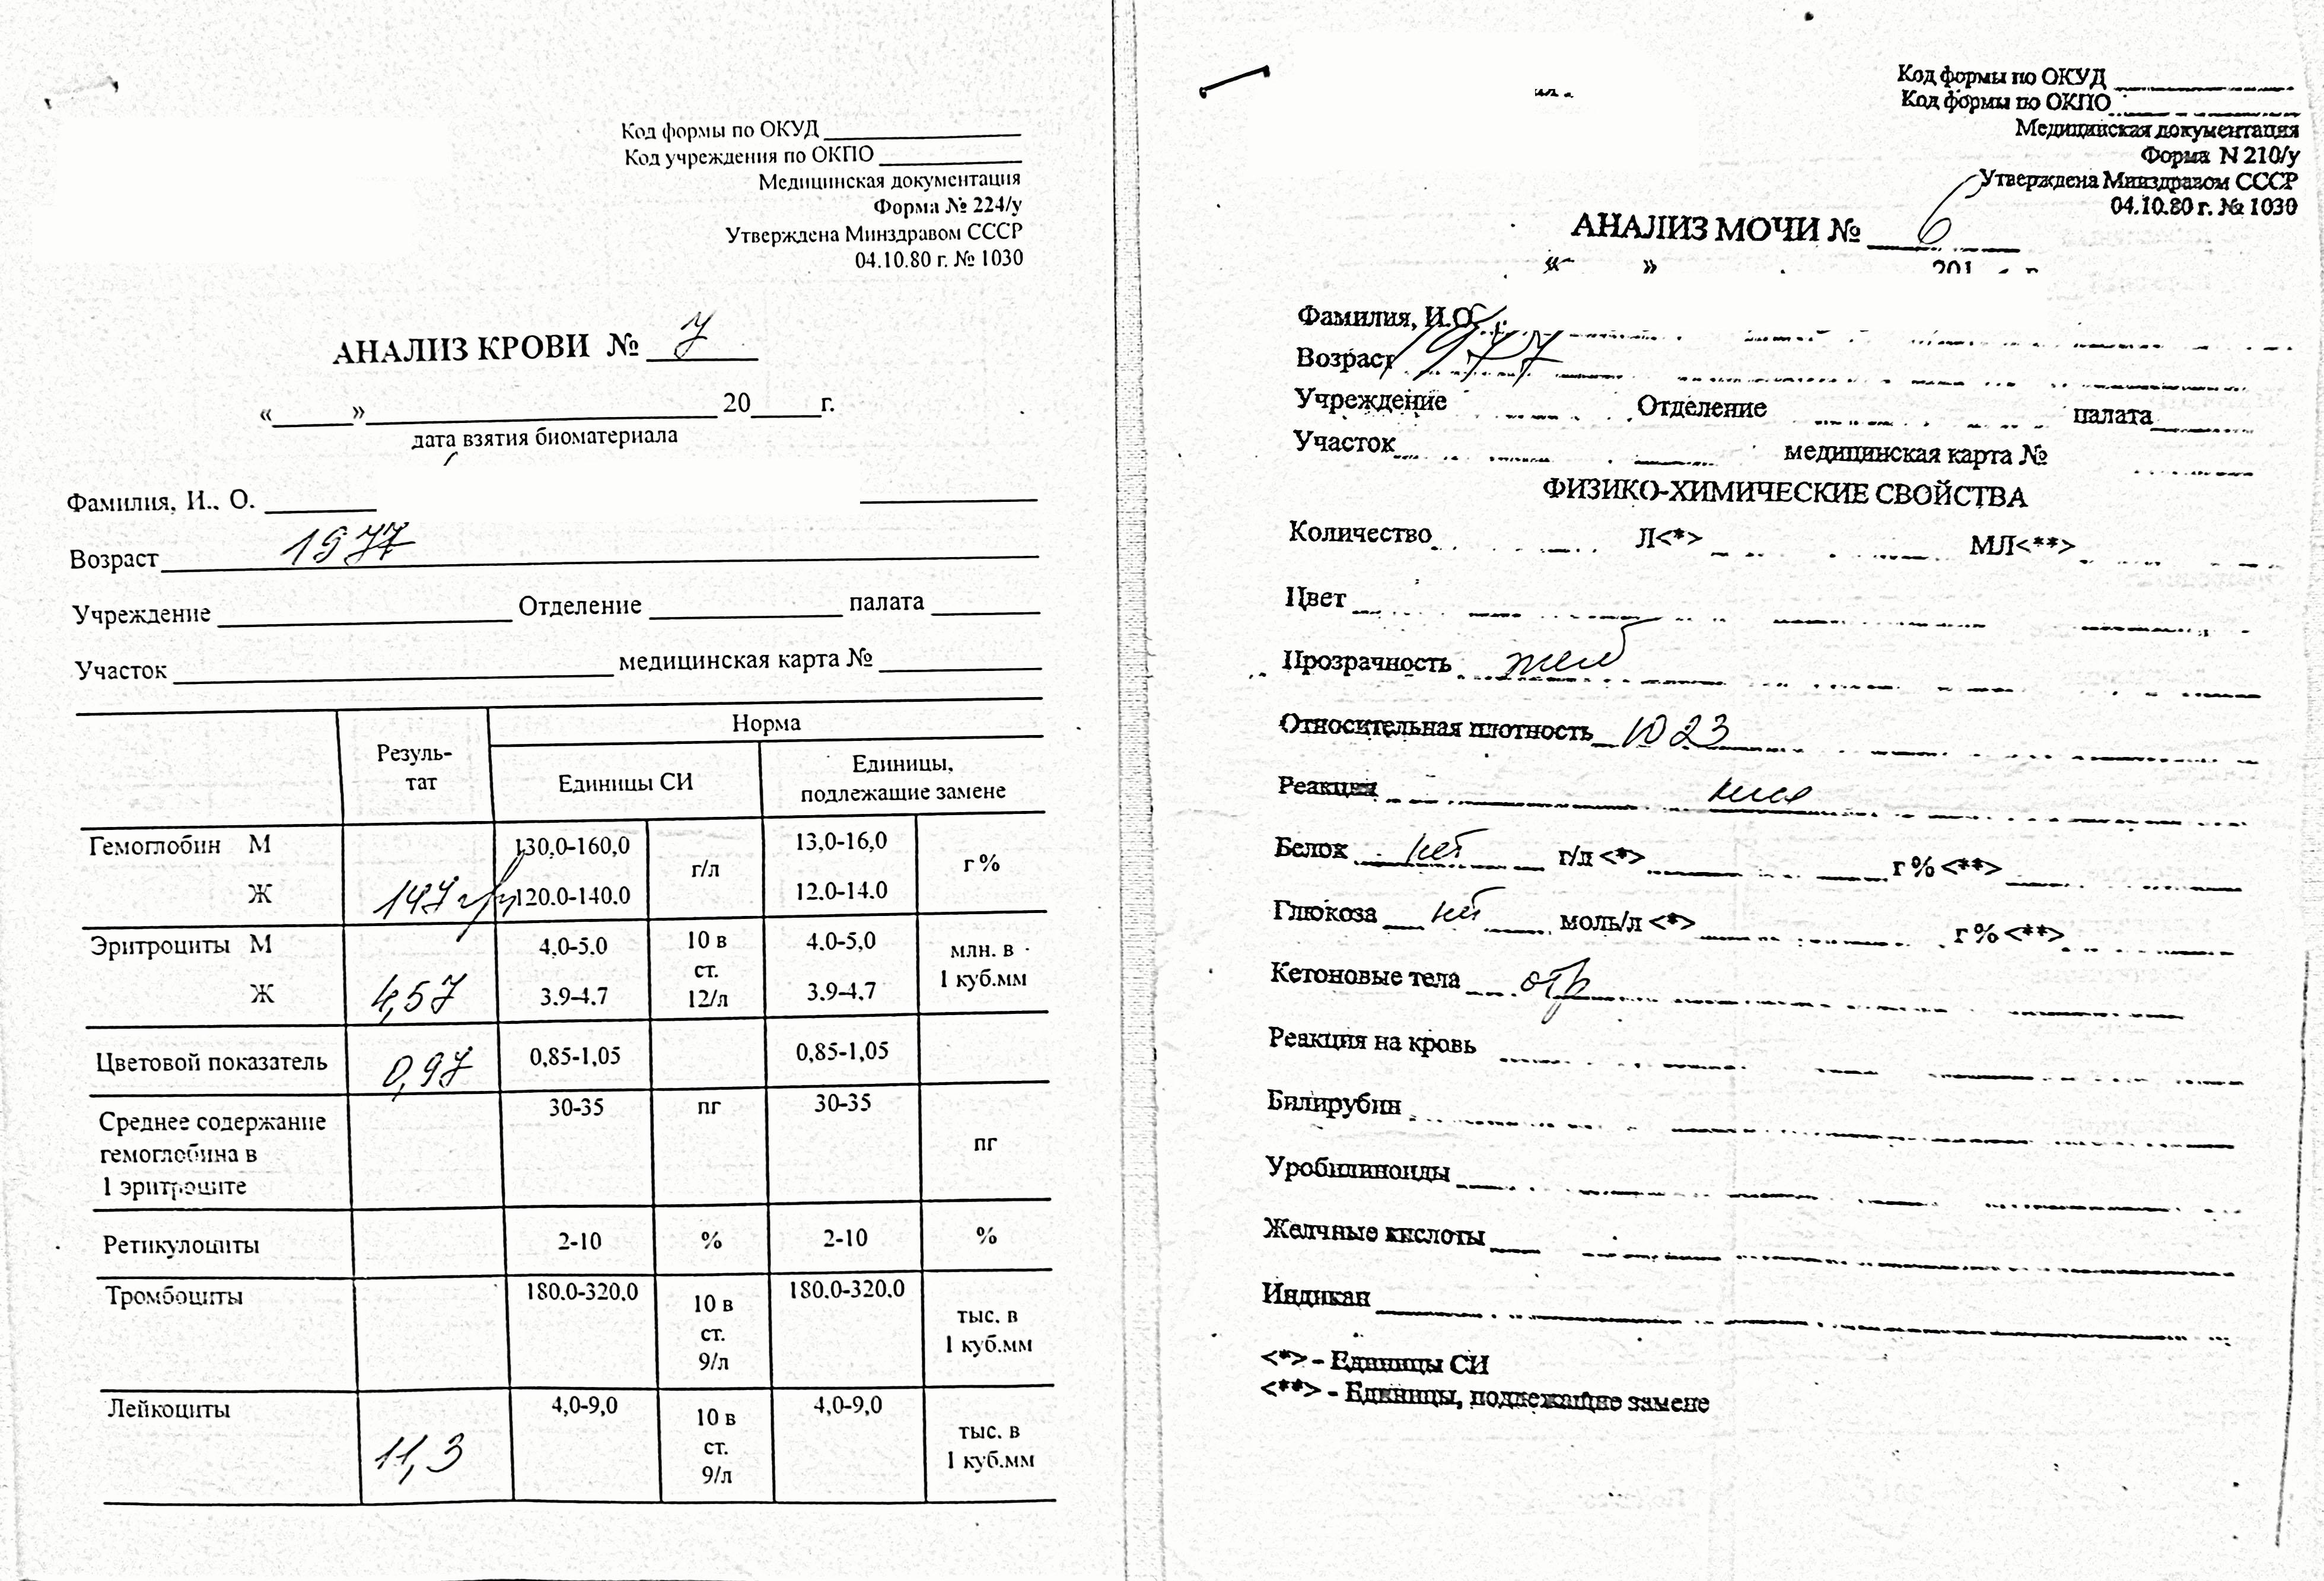 Код формы по ОКУД
Код учреждения по ОКПО
Медицинская документация
Форма № 224/у
Утверждена Минздравом СССР
04.10.80 г. № 1030
АНАЛИЗ КРОВИ № 7
« » 20 г.
дата взятия биоматериала
Фамилия, И., О.
Возраст 1977
Учреждение Отделение палата
Участок медицинская карта №
Резуль-
тат
Норма
Единицы СИ
Единицы,
подлежащие замене
Гемоглобин М 130,0-160,0 13,0-16,0
г/л г %
Ж 147 г/л 120.0-140.0 12.0-14.0
Эритроциты М 4,0-5,0 10 в ст. 12/л 4,0-5,0 млн. в 1 куб.мм
Ж 4,57 3.9-4.7 3.9-4.7
Цветовой показатель 0,97 0,85-1,05 0,85-1,05
Среднее содержание 30-35 пг 30-35 пг
гемоглобина в
1 эритроците
Ретикулоциты 2-10 % 2-10 %
Тромбоциты 180.0-320.0 10 в ст. 9/л 180.0-320.0 тыс. в 1 куб.мм
Лейкоциты 11,3 4,0-9,0 10 в ст. 9/л 4,0-9,0 тыс. в 1 куб.мм
Код формы по ОКУД
Код формы по ОКПО
Медицинская документация
Форма N 210/у
Утверждена Минздравом СССР
04.10.80 г. № 1030
АНАЛИЗ МОЧИ № 6
« » 201 г.
Фамилия, И.О.
Возраст 1977
Учреждение Отделение палата
Участок медицинская карта №
ФИЗИКО-ХИМИЧЕСКИЕ СВОЙСТВА
Количество Л<*> МЛ<**>
Цвет
Прозрачность жел
Относительная плотность 1023
Реакция кисл
Белок нет г/л <*> г % <**>
Глюкоза нет моль/л <*> г % <**>
Кетоновые тела отр
Реакция на кровь
Билирубин
Уробилиноиды
Желчные кислоты
Индикан
<*> - Единицы СИ
<**> - Единицы, подлежащие замене